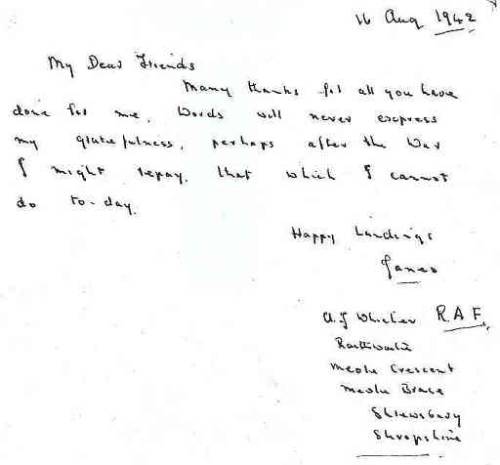 16 Aug 1942
My Dear Friends
Many thanks for all you have
done for me, Words will never express
my gratefulness, perhaps after the War
I might repay, that which I cannot
do to-day.
Happy Landings
James
R A F.
Meole Crescent
Meole Brace
Shrewsbury
Shropshire